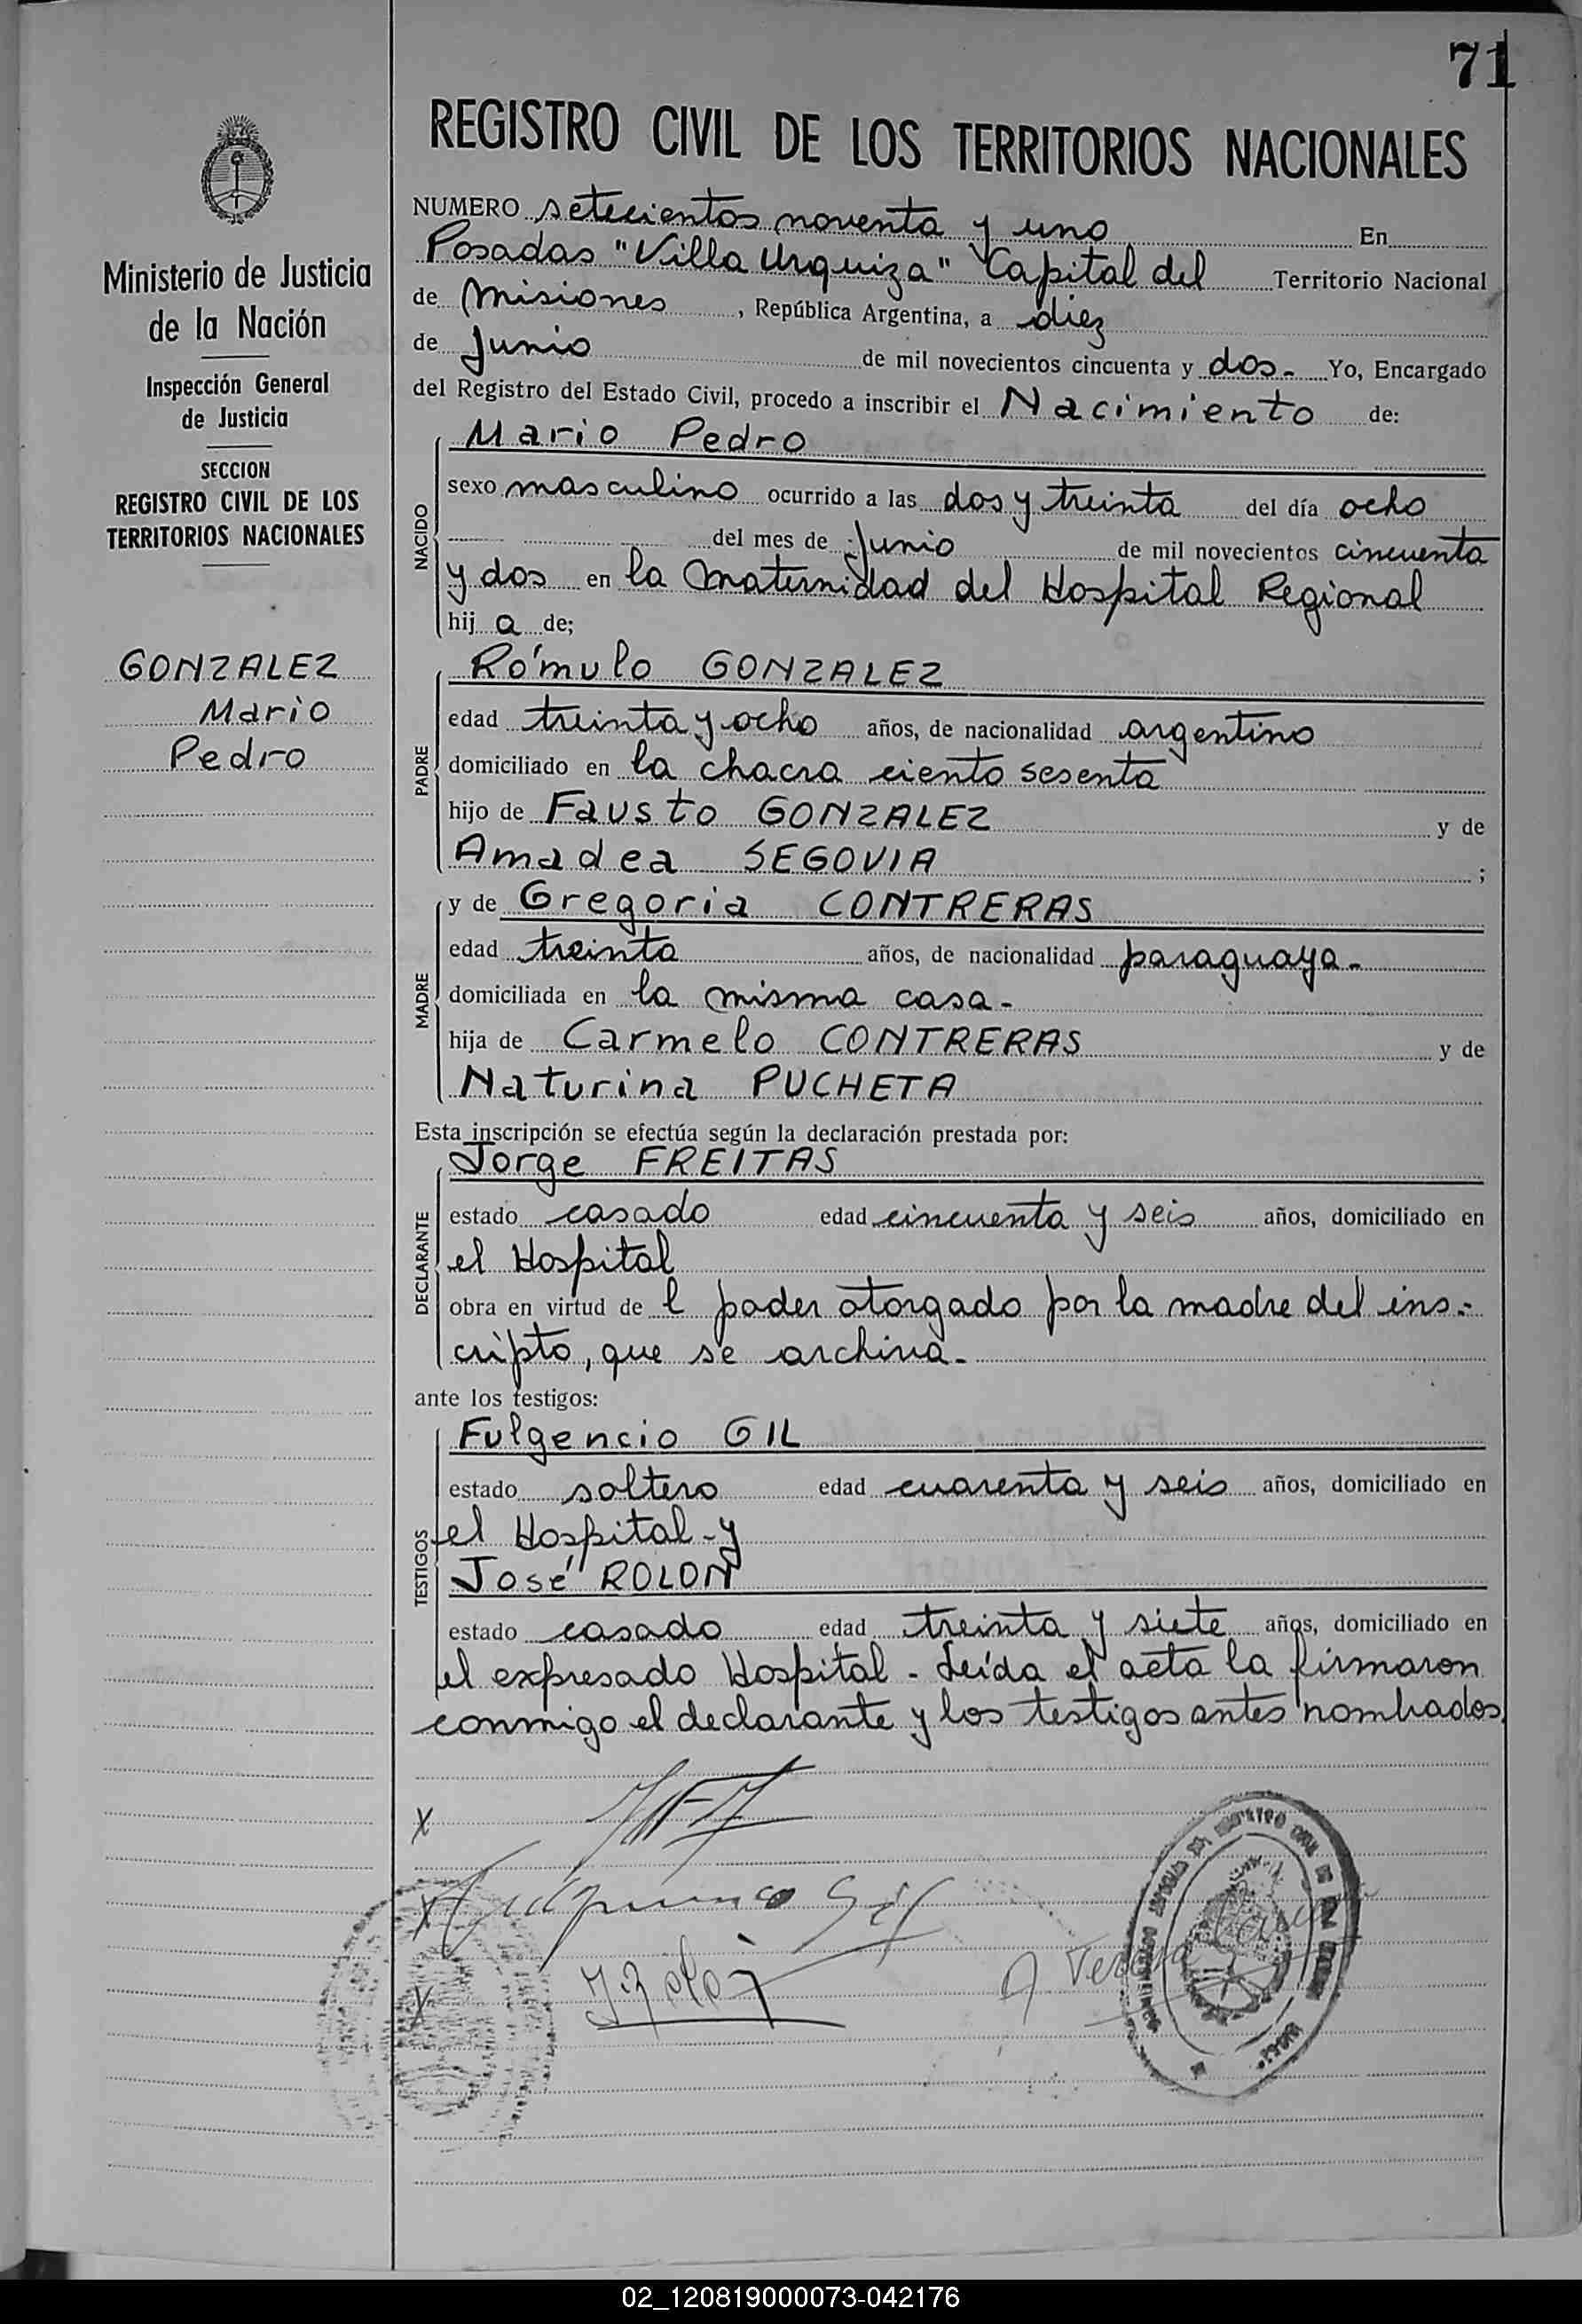 71
REGISTRO CIVIL DE LOS TERRITORIOS NACIONALES
Ministerio de Justicia
de la Nación
Inspección General
de Justicia
SECCION
REGISTRO CIVIL DE LOS
TERRITORIOS NACIONALES
GONZALEZ
Mario
Pedro
NUMERO setecientos noventa y uno En
Posadas "Villa Urquiza" Capital del Territorio Nacional
de Misiones, República Argentina, a diez
de Junio de mil novecientos cincuenta y dos.- Yo, Encargado
del Registro del Estado Civil, procedo a inscribir el Nacimiento de:
NACIDO
Mario Pedro
sexo masculino ocurrido a las dos y treinta del día ocho
del mes de Junio de mil novecientos cincuenta
y dos en la Maternidad del Hospital Regional
hij a de;
PADRE
Rómulo GONZALEZ
edad treinta y ocho años, de nacionalidad argentino
domiciliado en la chacra ciento sesenta
hijo de Fausto GONZALEZ y de
Amadea SEGOVIA ;
MADRE
y de Gregoria CONTRERAS
edad treinta años, de nacionalidad paraguaya.-
domiciliada en la misma casa.-
hija de Carmelo CONTRERAS y de
Naturina PUCHETA
Esta inscripción se efectúa según la declaración prestada por:
DECLARANTE
Jorge FREITAS
estado casado edad cincuenta y seis años, domiciliado en
el Hospital
obra en virtud de l poder otorgado por la madre del ins.-
cripto, que se archiva.-
ante los testigos:
TESTIGOS
Fulgencio GIL
estado soltero edad cuarenta y seis años, domiciliado en
el Hospital - y
José ROLON
estado casado edad treinta y siete años, domiciliado en
el expresado Hospital - Leída el acta la firmaron
conmigo el declarante y los testigos antes nombrados.
X
X Gil
X
02_120819000073-042176